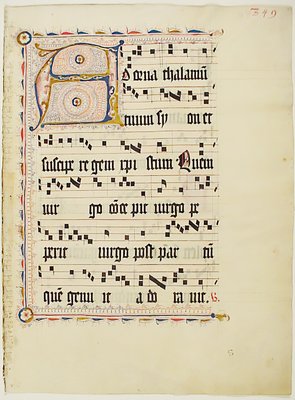 Adorna thalamū
tuum sy on et
suscipe re gem xpi stum Quem
uir go cōce pit uirgo pe
perit uirgo post par tū
quē genu it a do ra uit.